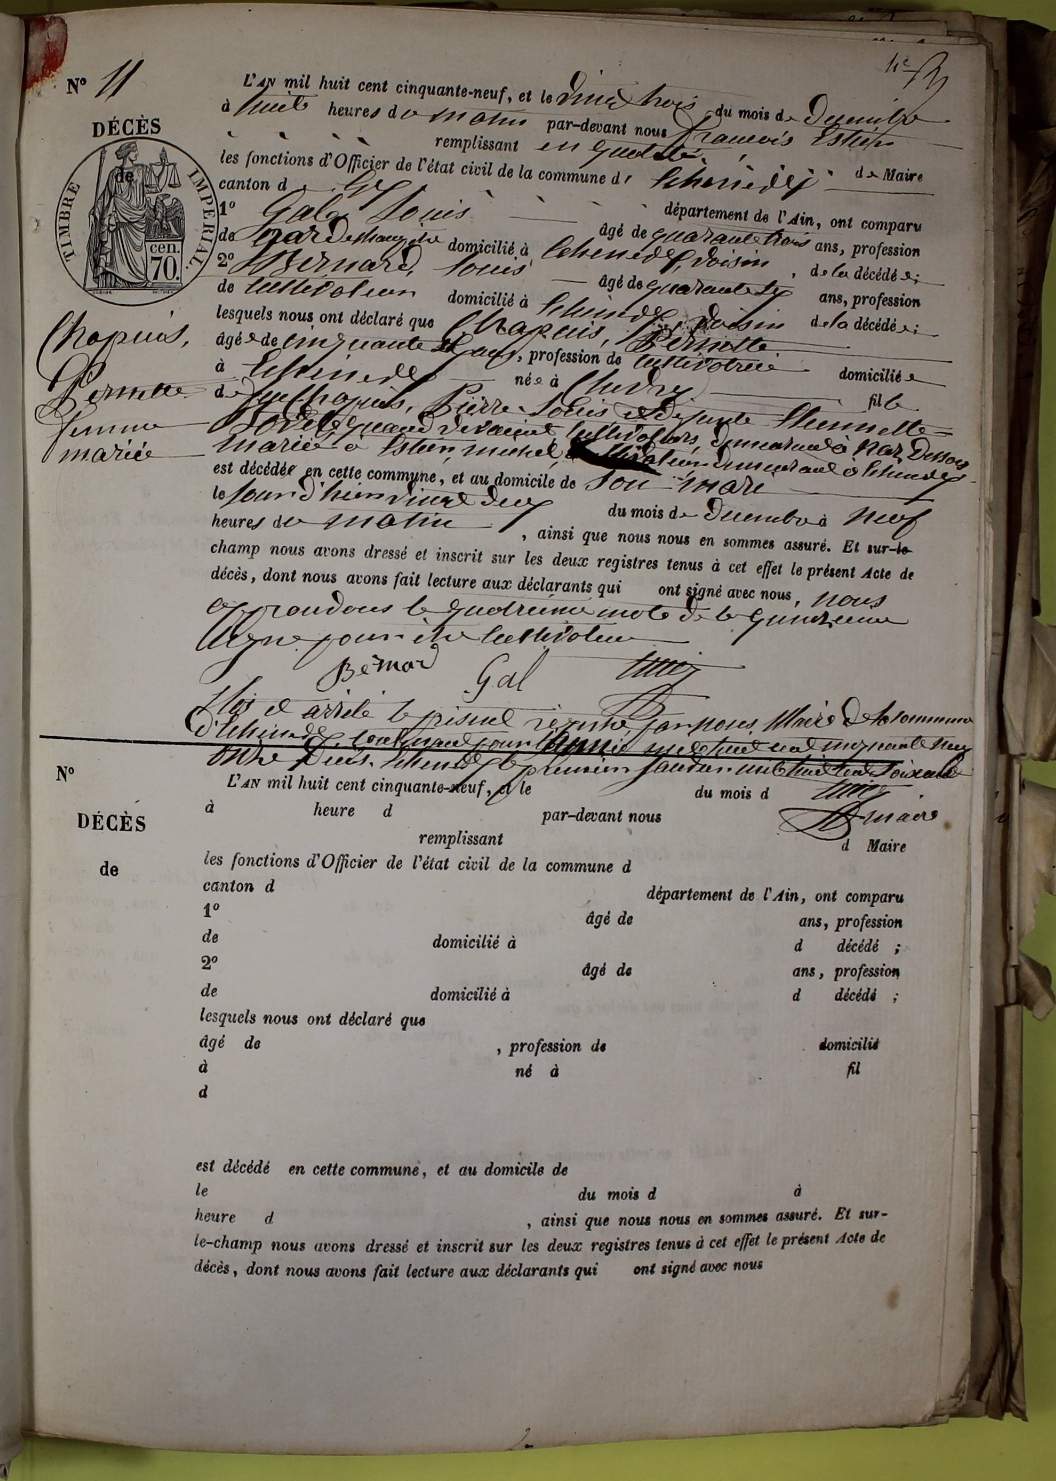 N° 11
DÉCÈS
de
TIMBRE IMPÉRIAL
cen.
70.
Chapuis,
Pernette
femme
mariée
L'AN mil huit cent cinquante-neuf, et le vingt trois du mois de Decembre
à huit heures du matin par-devant nous François Estier
remplissant en qualité de Maire
les fonctions d'Officier de l'état civil de la commune d'
canton d Gex département de l'Ain, ont comparu
1° Gal Louis âgé de quarante trois ans, profession
de garde domicilié à voisin de la décédée;
2° Bernard, Louis âgé de quarante ans, profession
de cultivateur domicilié à voisin de la décédée;
lesquels nous ont déclaré que Chapuis, Pernette
âgée de cinquante ans, profession de cultivatrice domiciliée
à née à Chevry fille
de Chapuis, Pierre Louis et défunte
quand vivait cultivateurs, demeurant à
mariée à cultivateur demeurant à
est décédée en cette commune, et au domicile de son mari
le jour d'hier vingt deux du mois de Decembre à neuf
heures du matin, ainsi que nous nous en sommes assuré. Et sur-le-
champ nous avons dressé et inscrit sur les deux registres tenus à cet effet le présent Acte de
décès, dont nous avons fait lecture aux déclarants qui ont signé avec nous, nous
approuvons le quatrième mot de la quinzième
ligne pour être cultivateur
Bernard Gal
Clos et arrêté le présent registre par nous, Maire de la commune
contenant pour l'année mil huit cent cinquante neuf
onze Décès. le premier janvier mil huit cent soixante
maire
N°
DÉCÈS
de
L'AN mil huit cent cinquante-neuf, et le du mois d
à heure d par-devant nous
remplissant d Maire
les fonctions d'Officier de l'état civil de la commune d
canton d département de l'Ain, ont comparu
1° âgé de ans, profession
de domicilié à d décédé ;
2° âgé de ans, profession
de domicilié à d décédé ;
lesquels nous ont déclaré que
âgé de , profession de domicilié
à né à fil
d
est décédé en cette commune, et au domicile de
le du mois d à
heure d , ainsi que nous nous en sommes assuré. Et sur-
le-champ nous avons dressé et inscrit sur les deux registres tenus à cet effet le présent Acte de
décès, dont nous avons fait lecture aux déclarants qui ont signé avec nous